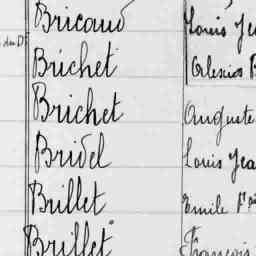 Bricaud Louis
Brichet
Brichet Auguste
Bridel Louis
Brillet Emile
Brillet François